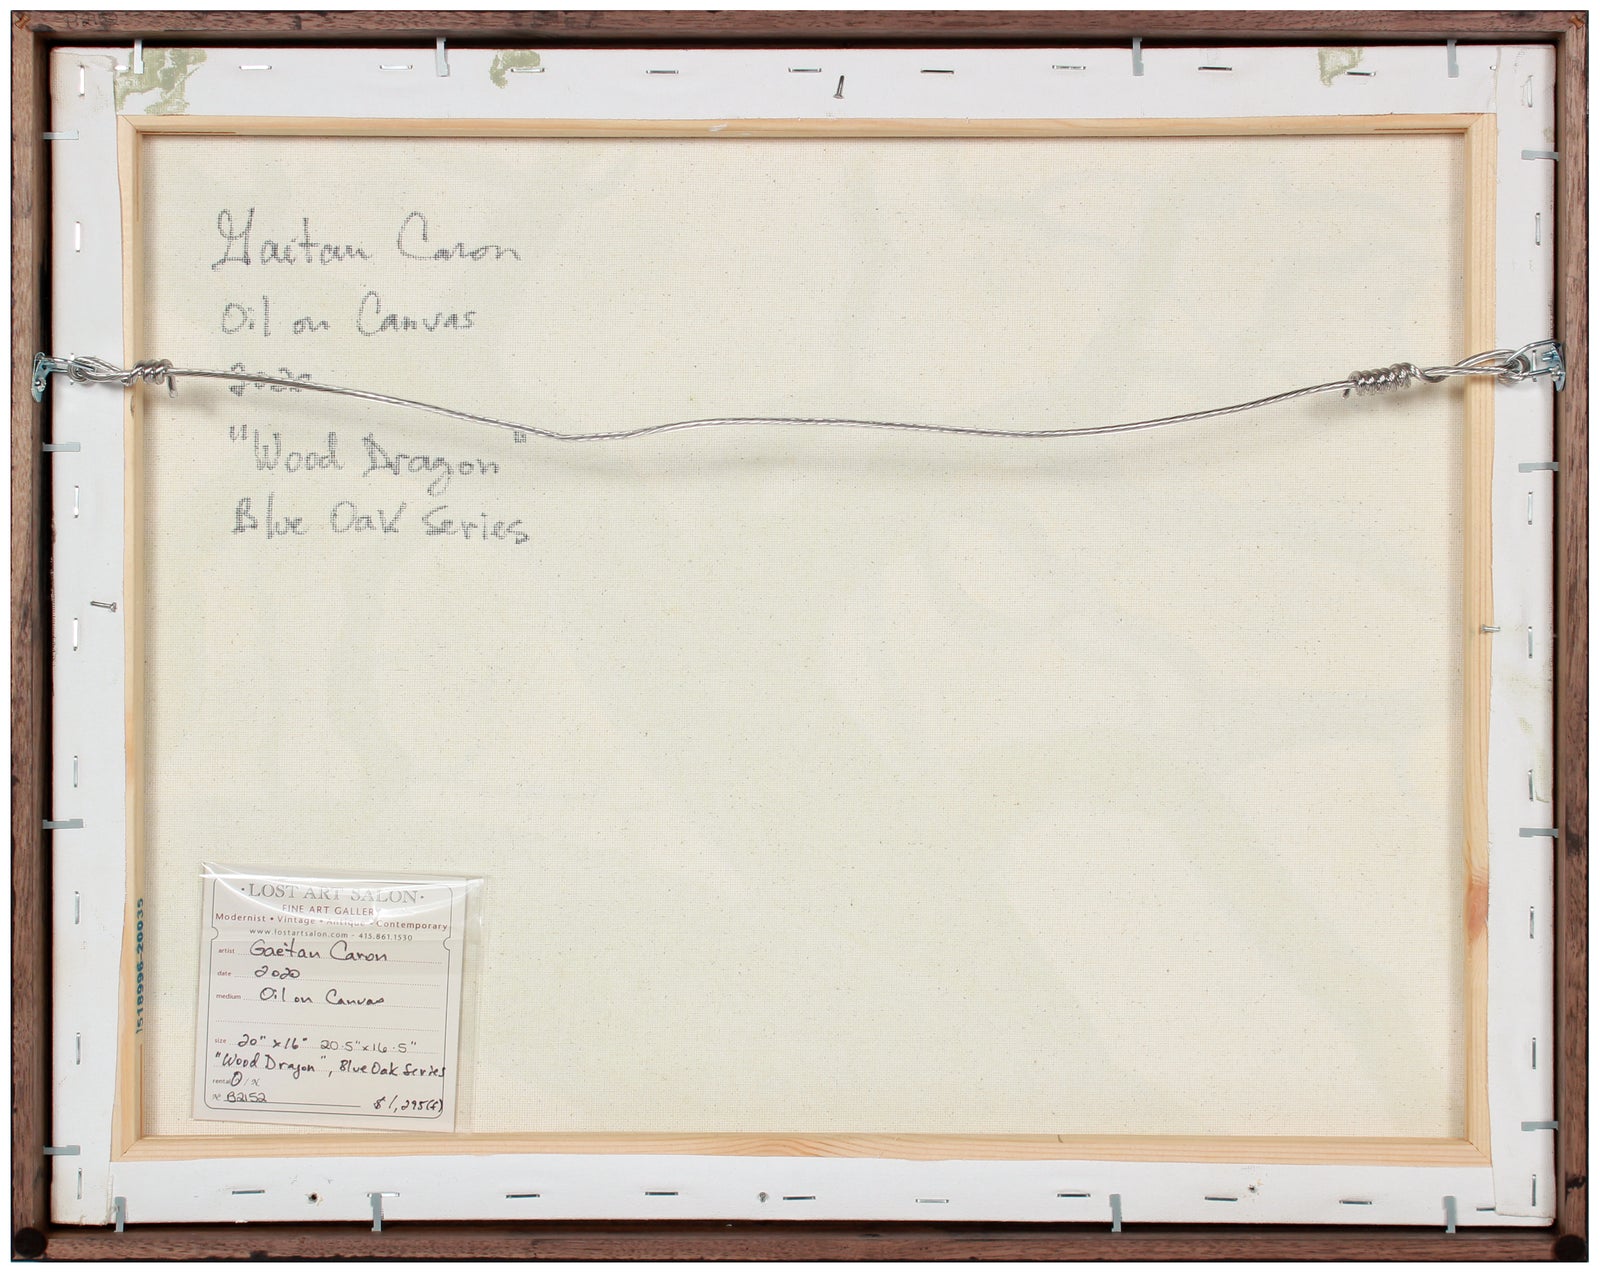 Gaétan Caron
Oil on Canvas
2020
"Wood Dragon"
Blue Oak Series
·LOST ART SALON·
FINE ART GALLERY
Modernist • Vintage • Antique • Contemporary
www.lostartsalon.com - 415.861.1530
artist Gaétan Caron
date 2020
medium Oil on Canvas
size 20" x 16" 20.5" x 16.5"
"Wood Dragon", Blue Oak Series
rental / N
Nº B2152
$1,295(f)
1518996-20035